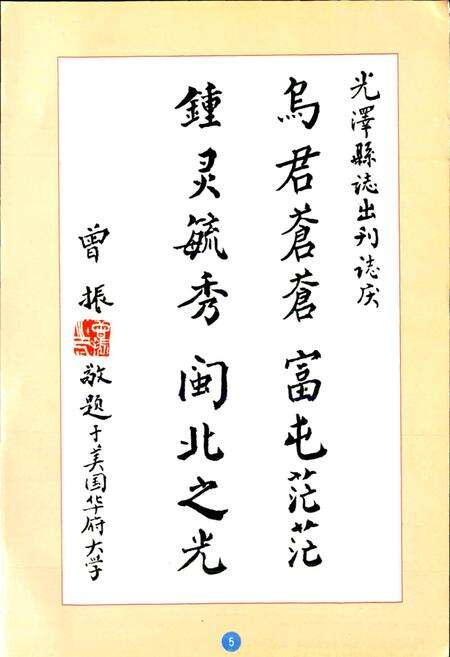 光澤縣誌出刊誌庆
烏君蒼蒼富屯茫茫
鍾灵毓秀闽北之光
曾振
敬题于美国华府大学
5